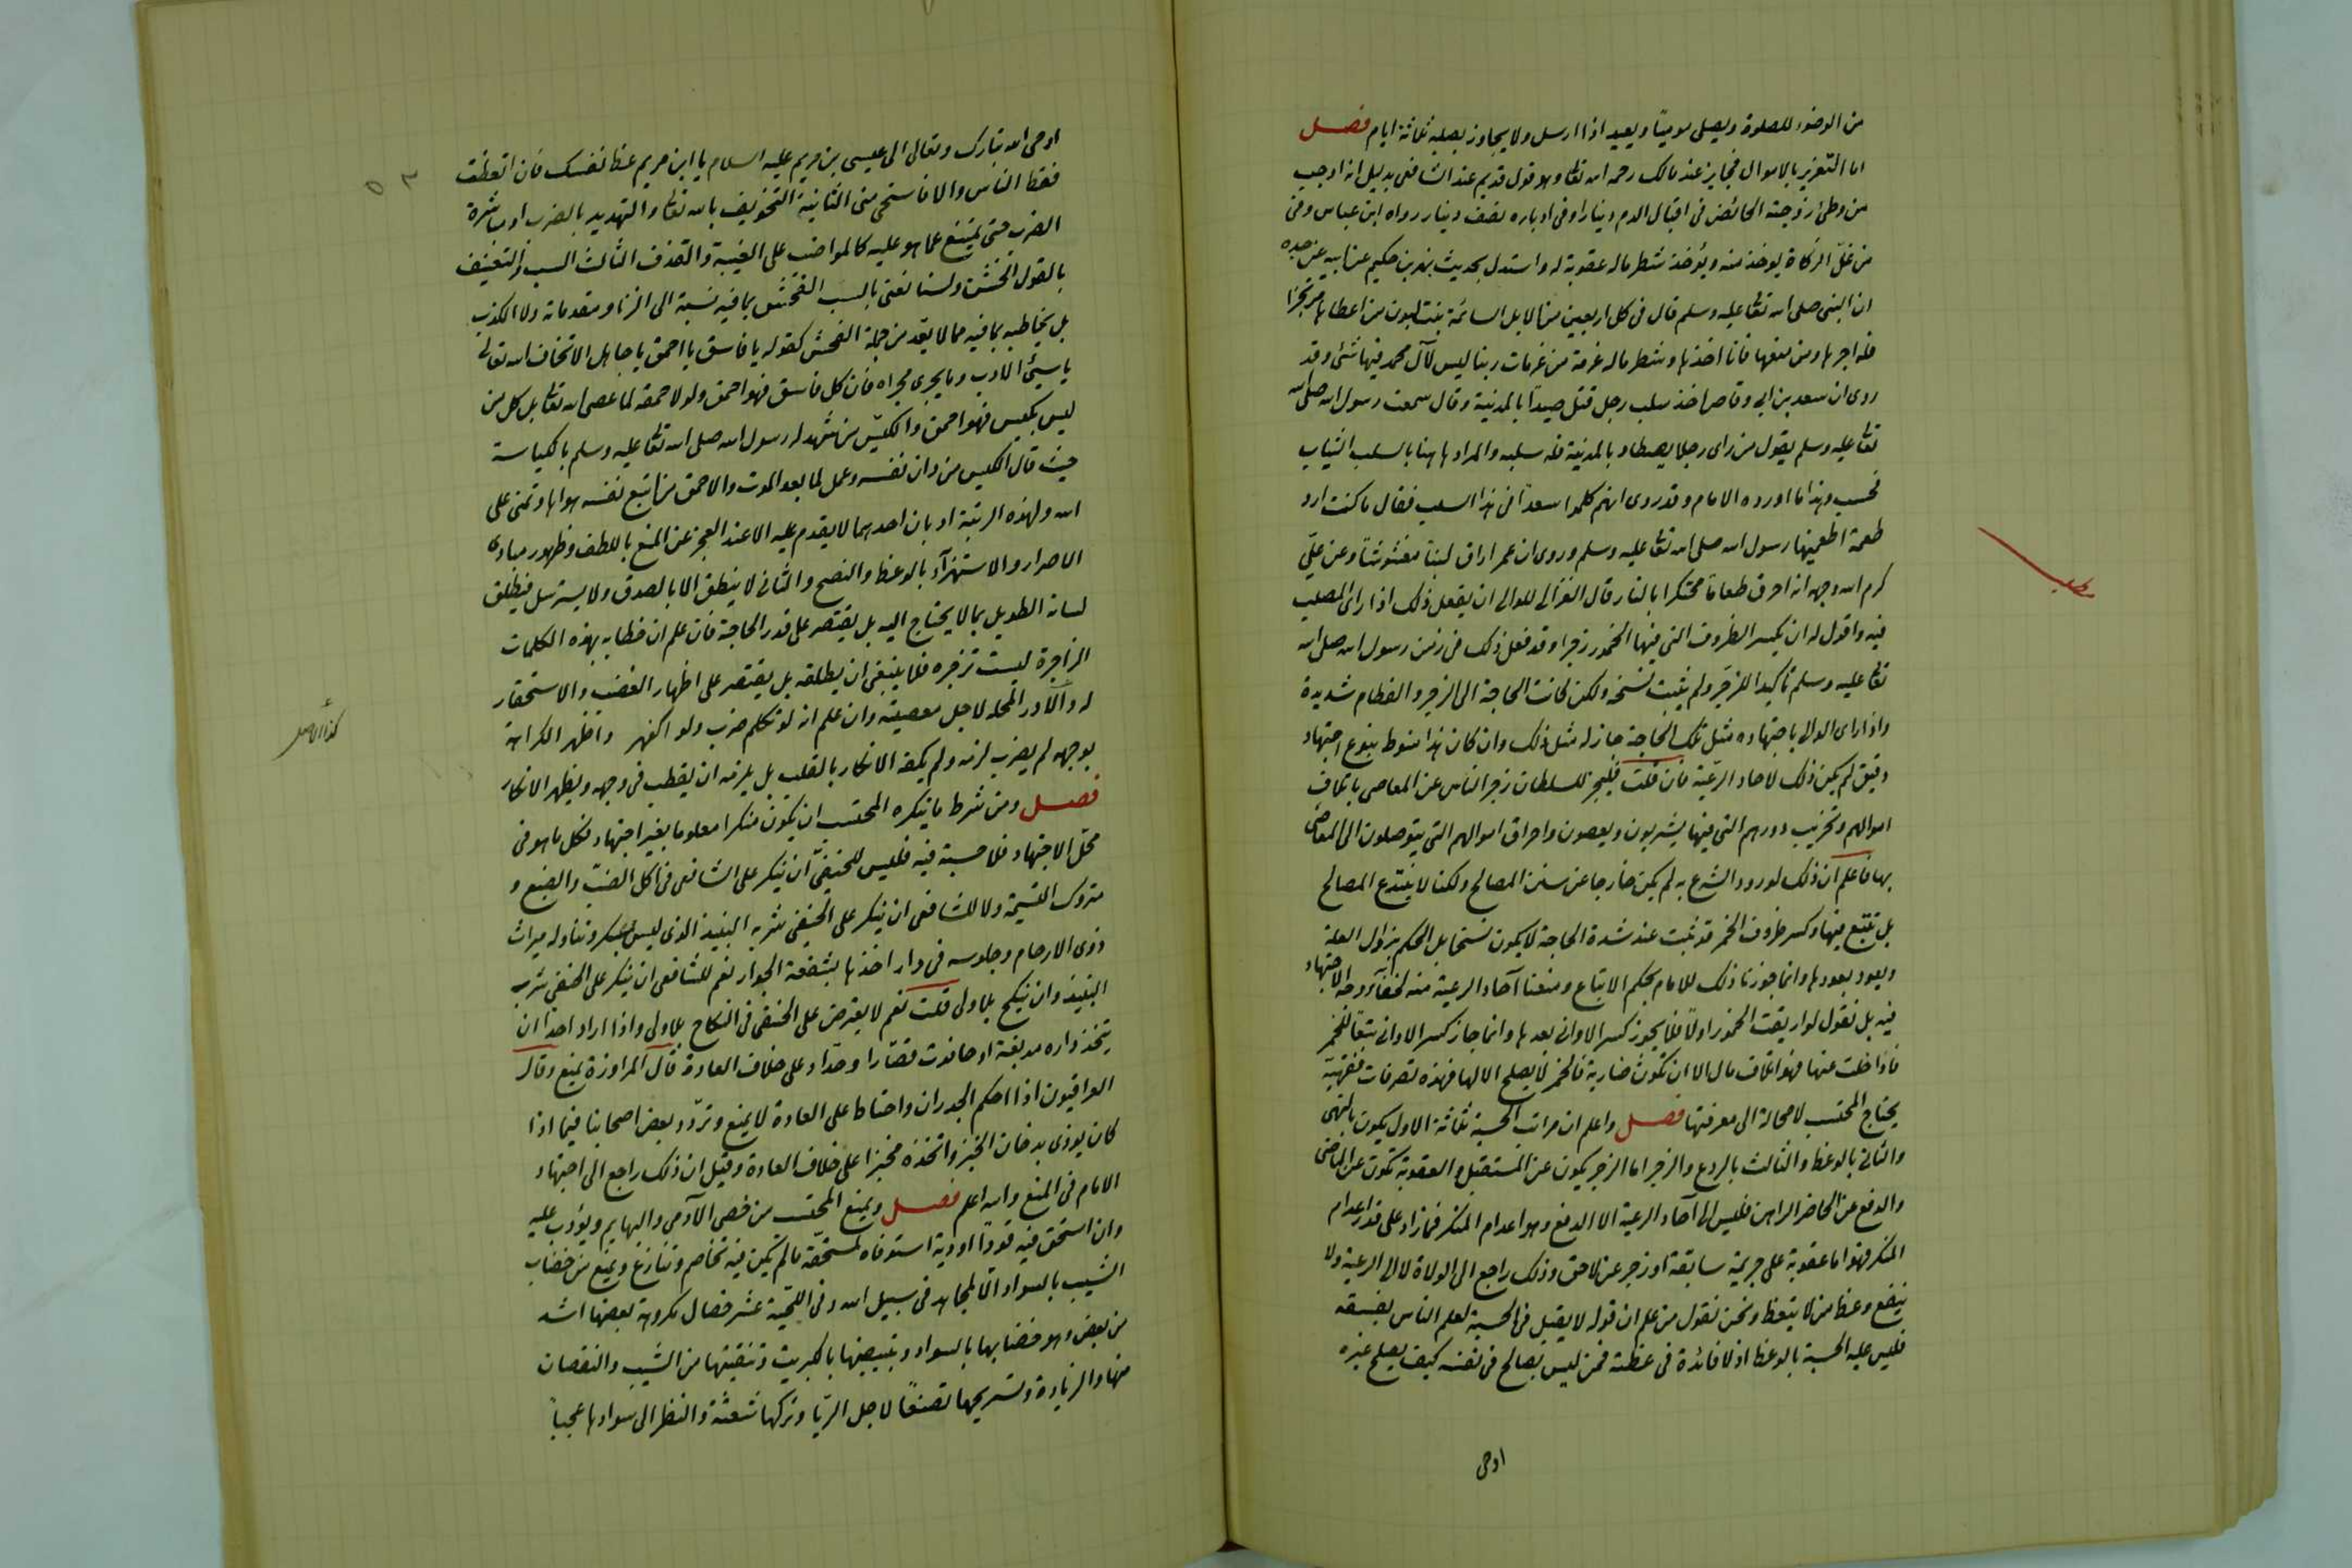 من الوضوء للصلوة ويصلى موميًا ويعيد اذا ارسل ولا يجاوز بصلبه ثلاثة ايام فصل
اما التعزير بالاموال فجايز عند مالك رحمه الله تعا وهو قول قديم عند الشافعى بدليل انه اوجب
من وطئ زوجته الحائض فى اقبال الدم دينارا وفى ادباره نصف دينار رواه ابن عباس وفى
من غلّ الزكاة يوخذ منه ويؤخذ شطر ماله عقوبة له واستدل بحديث بهز بن حكيم عن ابيه عن جده
ان النبى صلى الله تعا عليه وسلم قال فى كل اربعين من الابل السائمة بنت لبون من اعطاها مرتجزا
فله اجرها ومن منعها فانا اخذها وشطر ماله عزمة من عزمات ربنا ليس لآل محمد فيها شئ وقد
روى ان سعد بن ابى وقاص اخذ سلب رجل قتل صيدًا بالمدينة وقال سمعت رسول الله صلى الله
تعا عليه وسلم يقول من راى رجلا يصطاد بالمدينة فله سلبه والمراد هاهنا بالسلب الثياب
فحسب وهذا ما اورده الامام وقد روى انهم كلموا سعدًا فى هذا السلب فقال ما كنت ارد
طعمة اطعمنيها رسول الله صلى الله تعا عليه وسلم وروى ان عمر اراق لبنًا مغشوشًا وعن علىّ
كرم الله وجهه انه احرق طعامًا محتكرا بالنار قال الغزالى للوالى ان يفعل ذلك اذا راى المصلحة
فيه واقول له ان يكسر الظروف التى فيها الخمور زجرا وقد فعل ذلك فى زمن رسول الله صلى الله
تعا عليه وسلم تأكيدا للزجر ولم يثبت نسخه ولكن كانت الحاجة الى الزجر والفطام شديدة
واذا راى الوالى باجتهاده مثل تلك الحاجة جاز له مثل ذلك وان كان هذا منوط بنوع اجتهاد
دقيق لم يكن ذلك لاحاد الرعية فان قلت فليجز للسلطان زجر الناس عن المعاصى باتلاف
اموالهم وتخريب دورهم التى فيها يشربون ويعصون واحراق اموالهم التى يتوصلون الى المعاصى
بها فاعلم ان ذلك لو ورد الشرع به لم يكن خارجا عن سنن المصالح ولكنا لا نبتدع المصالح
بل نتبع فيها وكسر ظروف الخمر قد ثبت عند شدة الحاجة لا يكون نسخا بل الحكم يزول العلة
ويعود بعودها وانما جوزنا ذلك للامام بحكم الاتباع ومنعنا آحاد الرعية منه لخفآء وجه الاجتهاد
فيه بل نقول لو اريقت الخمور اولًا فلا يجوز كسر الاوانى بعدها وانما جاز كسر الاوانى تبعًا للخمر
فاذا خلت عنها فهو اتلاف مال الا ان تكون ضارية فالخمر لا يصلح الا لها فهذه تصرفات فقهية
يحتاج المحتسب لا محالة الى معرفتها فصل واعلم ان مراتب الحسبة ثلاثة الاول يكون بالنهى
والثانى بالوعظ والثالث بالردع والزجر اما الزجر يكون عن المستقبل والعقوبة تكون عن الماضى
والدفع عن الحاضر الراهن فليس الى آحاد الرعية الا الدفع وهو اعدام المنكر فما زاد على قدر اعدام
المنكر فهو اما عقوبة على جريمة سابقة او زجر عن لاحق وذلك راجع الى الولاة لا الى الرعية ولا
ينفع وعظ من لا يتعظ ونحن نقول من علم ان قوله لا يقبل فى الحسبة لعلم الناس بفسقه
فليس عليه الحسبة بالوعظ اذ لا فائدة فى عظته فمن ليس بصالح فى نفسه كيف يصلح غيره
اوحى
اوحى الله تبارك وتعالى الى عيسى بن مريم عليه السلام يا ابن مريم عظ نفسك فان اتعظت
فعظ الناس والا فاستحى منى الثانية التخويف بالله تعا والتهديد بالضرب او مباشرة
الضرب حتى يمتنع عما هو عليه كالمواضب على الغيبة والقذف الثالث السب والتعنيف
بالقول الخشن ولسنا نعنى بالسب الفحش بما فيه نسبة الى الزنا ومقدماته ولا الكذب
بل يخاطبه بما فيه مما لا يعد من جملة الفحش كقوله يا فاسق يا احمق يا جاهل الا تخاف الله تعالى
يا سئ الادب وما يجرى مجراه فان كل فاسق فهو احمق ولولا حمقه لما عصى الله تعا بل كل من
ليس بكيس فهو احمق والكيّس من شهد له رسول الله صلى الله تعا عليه وسلم بالكياسة
حيث قال الكيس من دان نفسه وعمل لما بعد الموت والاحمق من اتبع نفسه هواها وتمنى على
الله ولهذه الرتبة ادبان احدهما لا يقدم عليه الا عند العجز عن المنع باللطف وظهور مبادى
الاصرار والاستهزآء بالوعظ والنصح والثانى لا ينطق الا بالصدق ولا يسترسل فيطلق
لسانه الطويل بما لا يحتاج اليه بل يقتصر على قدر الحاجة فان علم ان خطابه بهذه الكلمات
الزاجرة ليست تزجره فلا ينبغى ان يطلقه بل يقتصر على اظهار الغضب والاستحقار
له والازدراء بمحله لاجل معصيته وان علم انه لو تكلم ضرب ولو اكفهر واظهر الكراهة
بوجهه لم يضرب لزمه ولم يكفه الانكار بالقلب بل يلزمه ان يقطب فى وجهه ويظهر الانكار
فصل ومن شرط ما ينكره المحتسب ان يكون منكرا معلوما بغير اجتهاد فكل ما هو فى
محل الاجتهاد فلا حسبة فيه فليس للحنفىّ ان ينكر على الشافعى فى اكل الضبّ والضبع و
متروك التسمية ولا للشافعى ان ينكر على الحنفى شربه النبيذ الذى ليس بمسكر وتناوله ميراث
ذوى الارحام وجلوسه فى دار اخذها بشفعة الجوار نعم للشافعى ان ينكر على الحنفى شرب
النبيذ وان ينكح بلا ولى قلت نعم لا يعترض على الحنفى فى النكاح بلا ولى واذا اراد احد ان
يتخذ داره مدبغة او حانوت قصّارا وحدّاد على خلاف العادة قال المراوزة يمنع وقال
العراقيون اذا احكم الجدران واحتاط على العادة لا يمنع وتردّد بعض اصحابنا فيما اذا
كان يوذى بدخان الخبز واتخذه مخبزا على خلاف العادة وقيل ان ذلك راجع الى اجتهاد
الامام فى المنع والله اعلم فصل ويمنع المحتسب من خصى الآدمى والبهايم ويؤدب عليه
وان استحق فيه قودًا او دية استوفاه لمستحقه ما لم يكن فيه تخاصم وتنازع ويمنع من خضاب
الشيب بالسواد الّا لمجاهد فى سبيل الله وفى اللحية عشر خصال مكروهة بعضها اشد
من بعض وهو خضابها بالسواد وتبييضها بالكبريت وتنقيتها من الشيب والنقصان
منها والزيادة وتسريحها تصنعًا لاجل الريا وتركها شعثة والنظر الى سوادها عجبًا
كذا الاصل